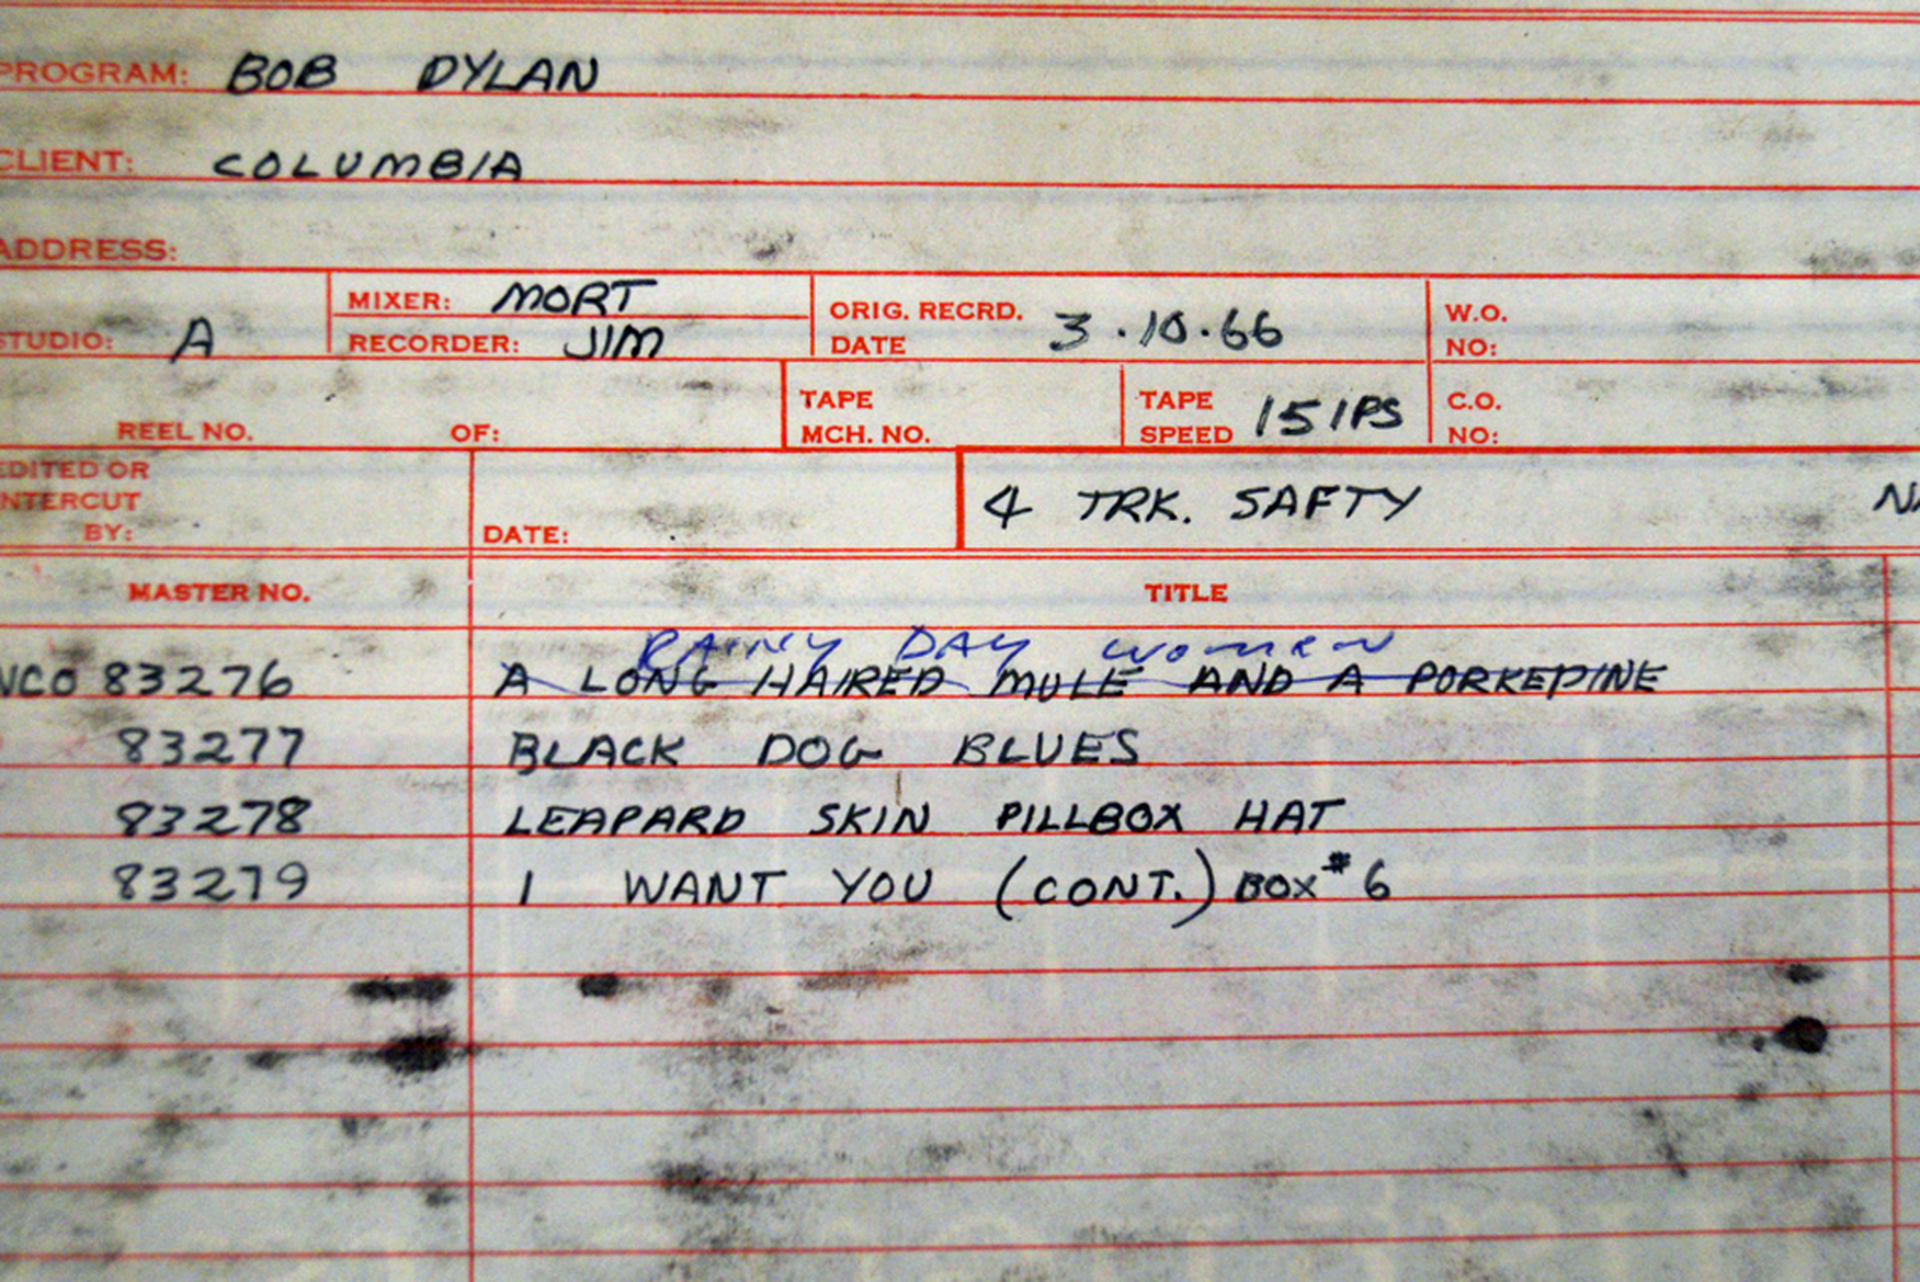 PROGRAM: BOB DYLAN
CLIENT: COLUMBIA
ADDRESS:
STUDIO: A
MIXER: MORT
RECORDER: JIM
ORIG. RECRD. DATE 3.10.66
W.O. NO:
REEL NO. OF:
TAPE MCH. NO.
TAPE SPEED 15 IPS
C.O. NO:
EDITED OR
INTERCUT
BY:
DATE:
4 TRK. SAFTY
MASTER NO. TITLE
RAINY DAY WOMEN
NCO 83276 A LONG HAIRED MULE AND A PORKEPINE
83277 BLACK DOG BLUES
83278 LEAPARD SKIN PILLBOX HAT
83279 I WANT YOU (CONT.) BOX #6